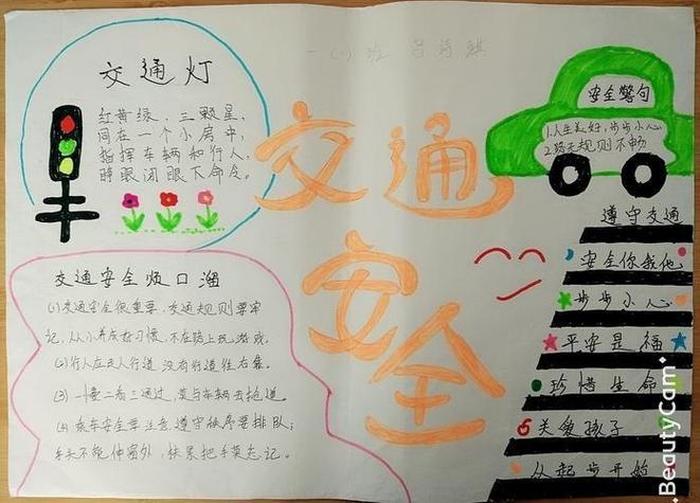 一(1)班
交通灯
红黄绿，三颗星，
同在一个小房中，
指挥车辆和行人，
睁眼闭眼下命令。
交通安全
安全警句
1.人生美好，步步小心
2.路无规则不畅
遵守交通
安全你我他
步步小心
平安是福
珍惜生命
关爱孩子
从起步开始
交通安全顺口溜
(1)交通安全很重要，交通规则要牢
记，从小养成好习惯，不在路上玩游戏。
(2)行人应走人行道，没有行道往右靠。
(3)一慢二看三通过，莫与车辆去抢道。
(4)乘车安全要注意，遵守秩序要排队；
手头不能伸窗外，扶紧把手莫忘记。
BeautyCam